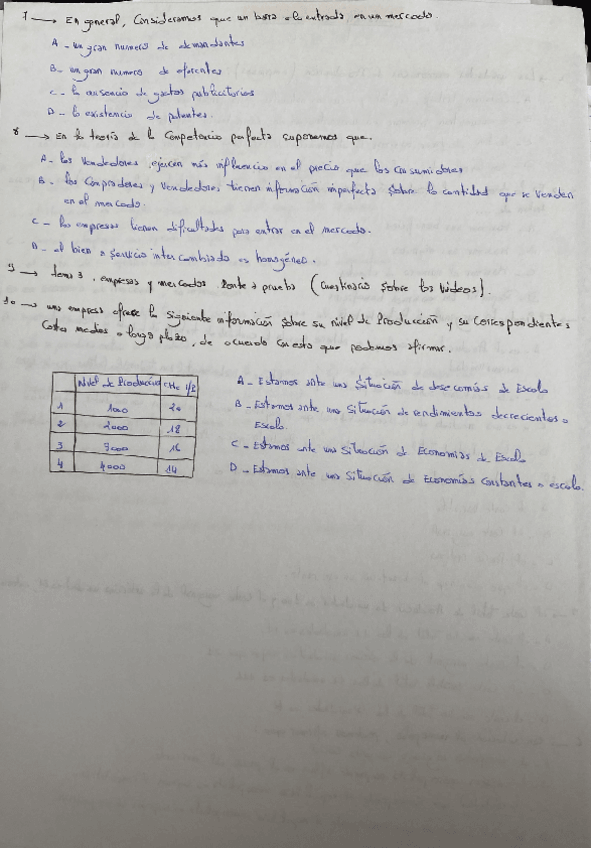 7 → En general, Consideramos que un barra a la entrada en un mercado.
A - un gran numero de demandantes
B - un gran numero de oferentes
C - la ausencia de gastos publicitorios
D - la existencia de patentes.
8 → En la teoría de la Competencia perfecta suponemos que.
A - los Vendedores, ejercen más influencia en el precio que los Consumidores
B - los Compradores y Vendedores tienen información imperfecta sobre la cantidad que se venden
en el mercado.
C - las empresas tienen dificultades para entrar en el mercado.
D - el bien o servicio intercambiado es homogéneo.
9 → tema 3, empresas y mercados. Ponte a prueba (Cuestionario sobre los videos).
10 → una empresa ofrece la siguiente información sobre su nivel de Producción y su correspondientes
Costes medios a largo plazo, de acuerdo con esto que podemos afirmar.
Nivel de Producción CMe
1 1000 20
2 2000 18
3 3000 16
4 4000 14
A - Estamos ante una Situación de deseconomías de Escala
B - Estamos ante una Situación de rendimientos decrecientes a
Escala.
C - Estamos ante una Situación de Economías de Escala
D - Estamos ante una Situación de Economías Constantes a escala.